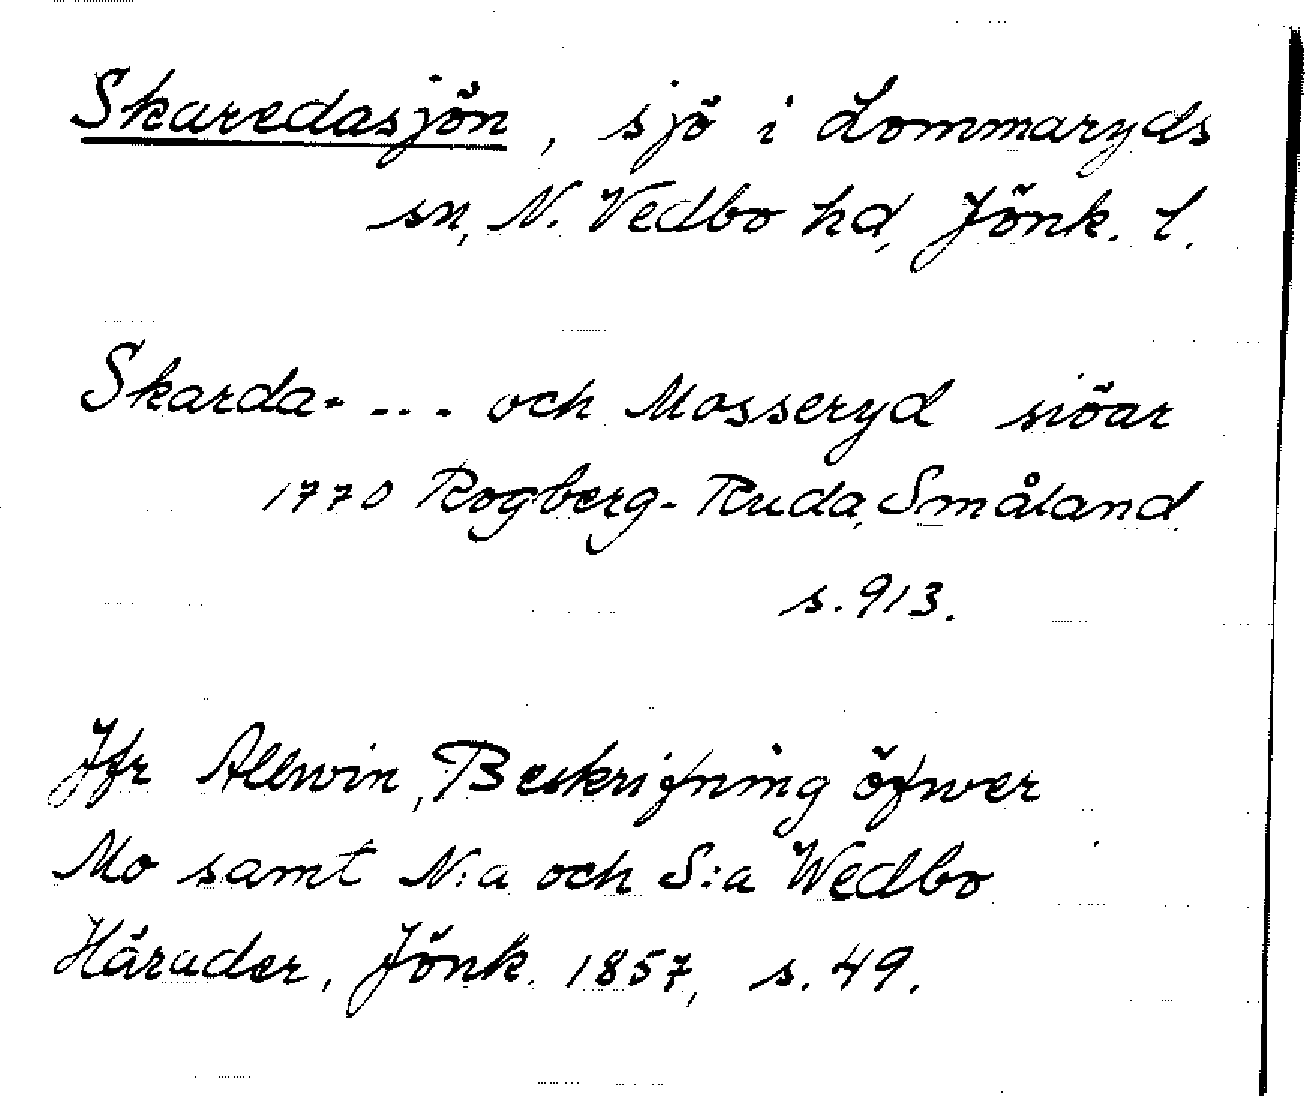 Skaredasjön, sjö i Lommaryds
sn, N. Vedbo hd, Jönk. l.
Skarda- ... och Mosseryd siöar
1770 Rogberg-Ruda, Småland
s. 913.
Jfr Allwin, Beskrifning öfwer
Mo samt N:a och S:a Wedbo
Härader, Jönk. 1857, s. 49.